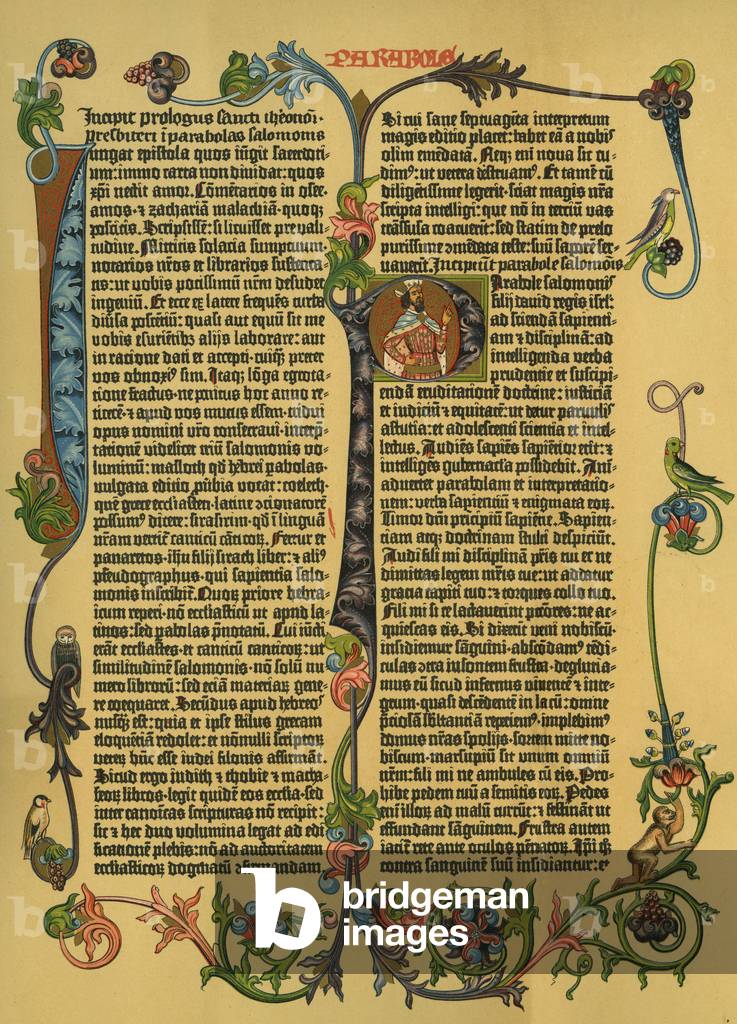 PARABOLE
Incipit prologus sancti iheronimi
presbiteri i parabolas salomonis
Iungat epistola quos iūgit sacerdoti-
um: immo carta non diuidat: quos
xp̄i nectit amor. Cōmētarios in osee.
amos. ⁊ zachariā malachiā. quoq;
poscitis. Scripsissē: si licuisset p̄ vali-
tudine. Mittitis solacia sumptuum.
notarios nr̄os et librarios sustenta-
tis: ut vobis potissimū nr̄m desudet
ingeniū. Et ecce ex latere frequēs turba
diūsa poscētiū: quasi aut equū sit me
vobis esurietibꝫ alijs laborare: aut
in ratione dati et accepti. cuiq̄; preter
vos obnoxi⁹ sim. Itaq; lōga egrota-
tione fractus. ne penitus hoc anno re-
ticerē. ⁊ apud vos mutus essem. tridui
opus nomini vr̄o consecraui. interp̄-
tationē videlicet triū salomonis vo-
luminū: masloth qd̄ hebrei pabolas.
vulgata editio pūbia vocat: coeleth.
quē grece ecclesiasten. latine ↄcionatorē
possum⁹ dicere: sirasirim. qd̄ ī linguā
nr̄am vertit̄ canticū cāticorꝫ. Fertur et
panaretos. ih̄u filij sirach liber: ⁊ ali⁹
pseudographus. qui sapientia salo-
monis inscribit̄. Quorꝫ priore hebra-
icum reperi. nō ecclesiasticū ut apud la-
tinos: sed pabolas p̄notatū. Cui iūcti
erāt ecclesiastes. et canticū canticorꝫ: ut
similitudinē salomonis. nō solū nu-
mero librorū: sed etiā materiarꝫ gene-
re coequaret. Secūdus apud hebreos
nusq̄; est: quia et ipse stilus grecam
eloquētiā redolet: et nōnulli scriptorꝫ
veterꝫ hūc esse iudei filonis affirmāt.
Sicud ergo iudith ⁊ thobie ⁊ macha-
beorꝫ libros. legit quidē eos ecclesia. sed
inter canoicas scripturas nō recipit:
sic ⁊ hec duo volumina legat ad edi-
ficationē plebis: nō ad auctoritatem
ecclesiasticorꝫ dogmatū ↄfirmandam.
Si cui sane septuagīta interpretum
magis editio placet: habet eā a nobis
olim emēdatā. Neq; eni nova sic cu-
dim⁹: ut vetera destruam⁹. Et tamē cū
diligētissime legerit. sciat magis nr̄a
scripta intelligi: que nō in terciū vas
trāsfusa coacuerit: sed statim de prelo
purissime ↄmēdata teste: suū saporē ser-
uauerīt. Incipiūt parabole salomōis
Parabole salomonis
filij dauid regis isrl̄:
ad sciendā sapienti-
am ⁊ disciplinā: ad
intelligenda verba
prudentie et suscipi-
endā eruditationē doctrine: iusticiā
et iudiciū ⁊ equitatē: ut detur paruulis
astutia: et adolescenti scientia et intel-
lectus. Audiēs sapiēs sapiētior erit: ⁊
intelligēs gubernacla possidebit. Ani-
aduertet parabolam et interpretatio-
nem: verba sapientiū ⁊ enigmata eorꝫ.
Timor dn̄i principiū sapiētie. Sapien-
tiam atq; doctrinam stulti despiciūt.
Audi fili mi disciplinā pr̄is tui et ne
dimittas legem mr̄is tue: ut addatur
gracia capiti tuo: ⁊ torques collo tuo.
Fili mi si te lactauerint pctōres: ne ac-
quiescas eis. Si dixerīt veni nobiscū.
insidiemur sāguini. abscōdam⁹ tēdi-
culas ↄtra insontem frustra. deglutia-
mus eū sicud infernus viuentē ⁊ inte-
grum. quasi descēdentē in lacū: omnē
p̄ciosā sb̄stantiā reperiem⁹. implebim⁹
domus nr̄as spolijs. sortem mitte no-
biscum. marsupiū sit unum omniū
nr̄m: fili mi ne ambules cū eis. Pro-
hibe pedem tuū a semitis eorꝫ. Pedes
eni illorꝫ ad malū currūt: ⁊ festināt ut
effundant sāguinem. Frustra autem
iacit̄ rete ante oculos pēnatorꝫ. Ip̄i q̄
contra sanguinē suū insidiantur: et
b bridgeman
images